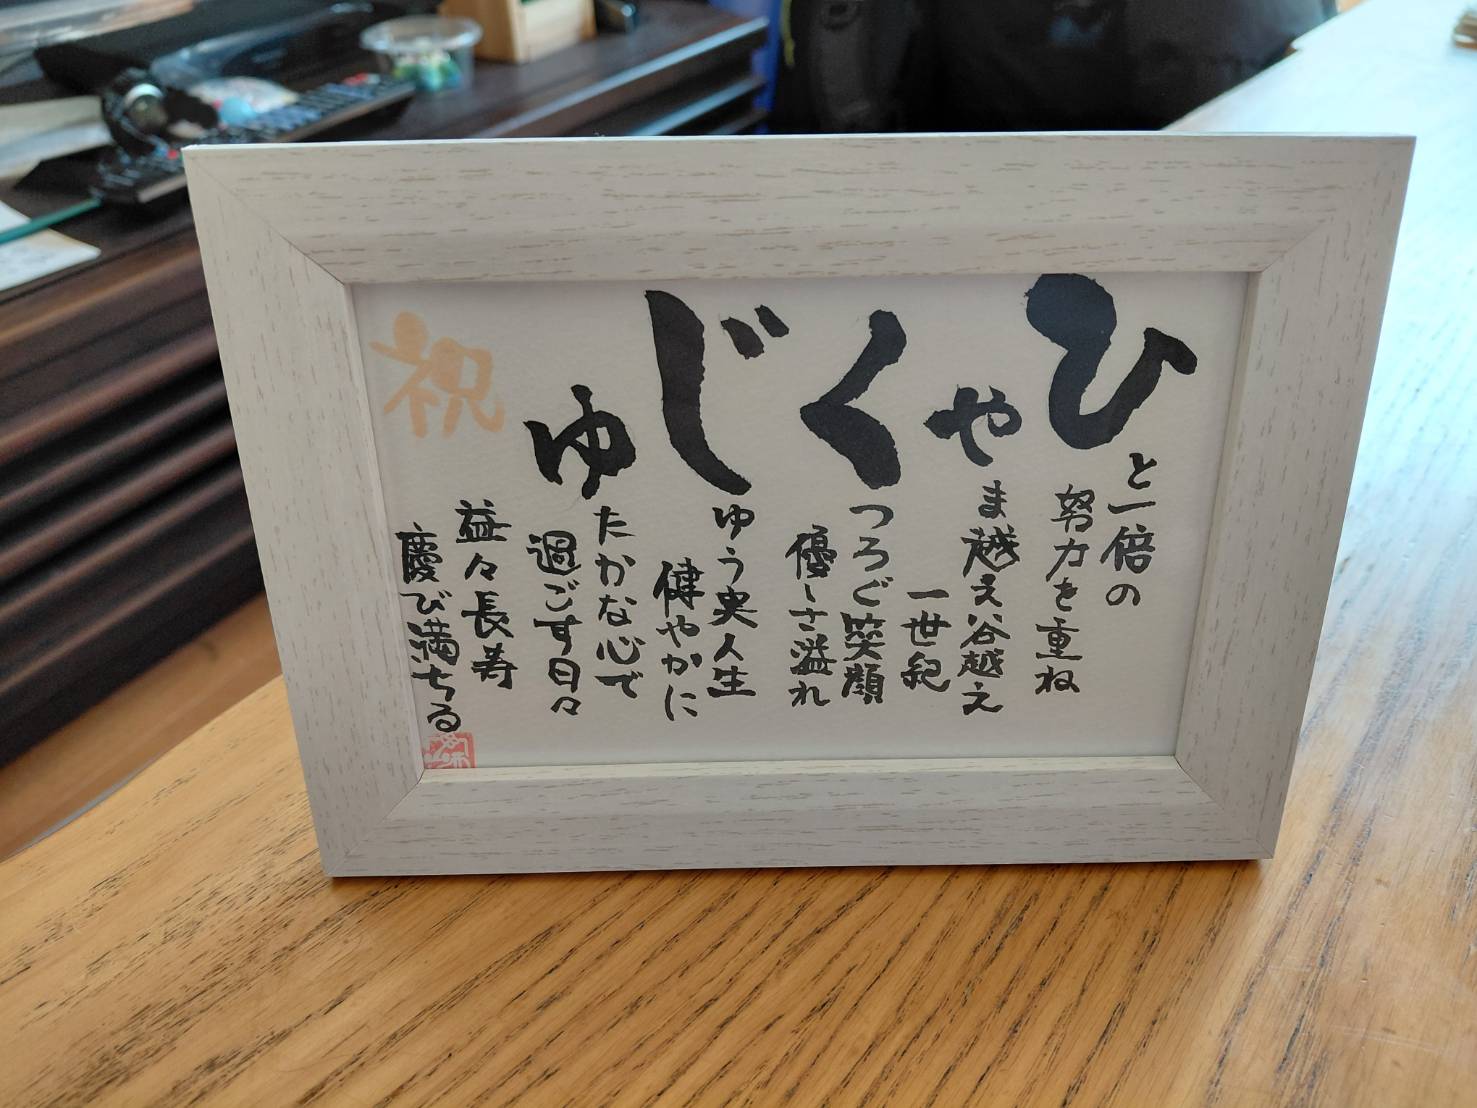 ひと一倍の
努力を重ね
やま越え谷越え
一世紀
くつろぐ笑顔
優しさ溢れ
じゆう実人生
健やかに
ゆたかな心で
過ごす日々
益々長寿
慶び満ちる
祝